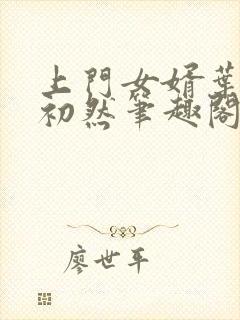 上門女婿葉
初然筆趣閣
廖世平